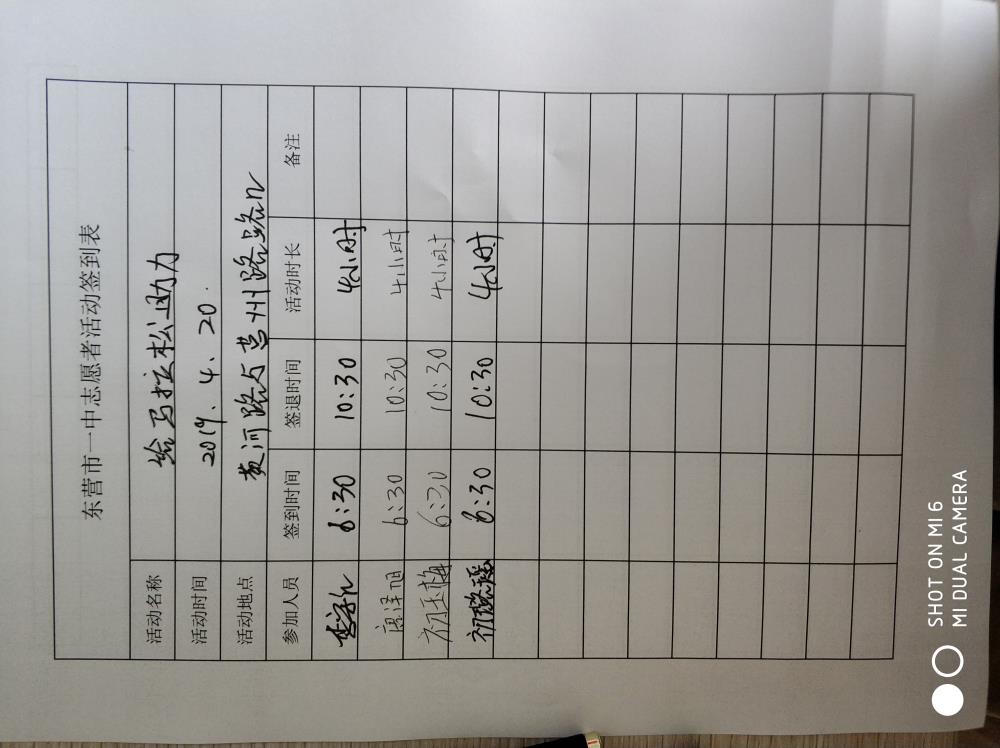 东营市一中志愿者活动签到表
活动名称 给马拉松助力
活动时间 2019.4.20.
活动地点 黄河路与莒州路路口
参加人员 签到时间 签退时间 活动时长 备注
6:30 10:30 4小时
6:30 10:30 4小时
初玉梅 6:30 10:30 4小时
6:30 10:30 4小时
SHOT ON MI 6
MI DUAL CAMERA